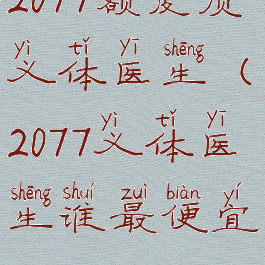 yì tǐ yī shēng
义体医生（
yì tǐ yī
2077义体医
shēng shuí zuì biàn yí
生谁最便宜